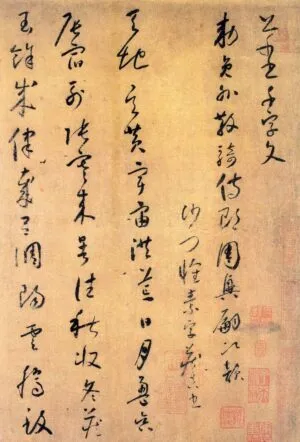 千字文
勅員外散騎侍郎周興嗣次韻
沙門懷素字藏真
天地玄黃宇宙洪荒日月盈昃
辰宿列張寒來暑往秋收冬藏
餘成律歲呂調陽雲騰致